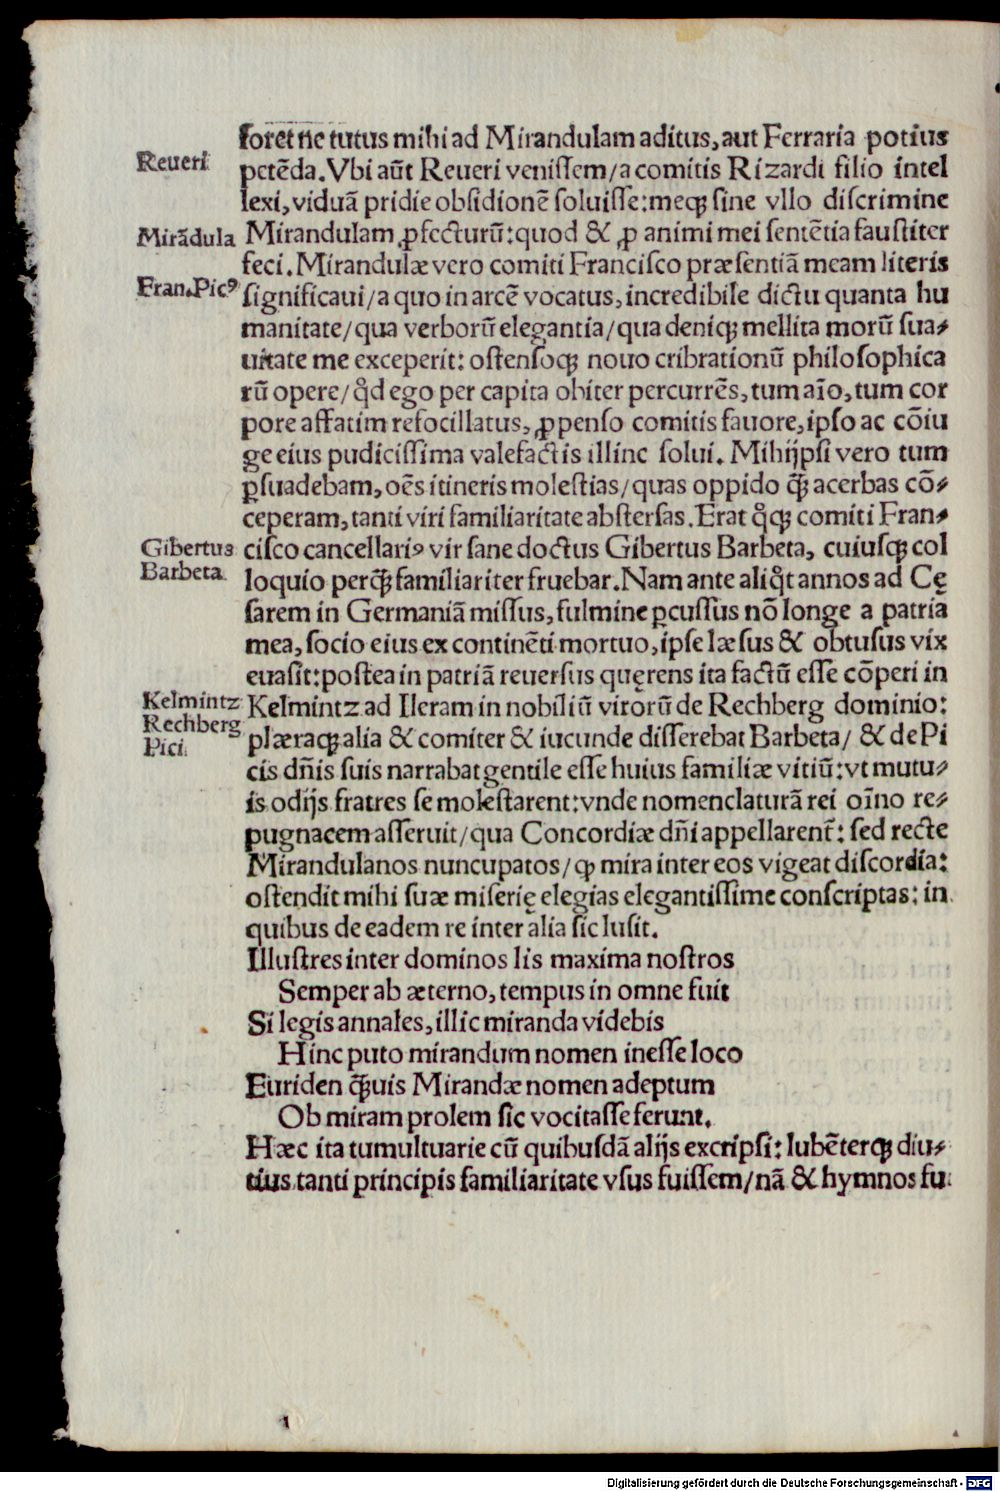 foret ne tutus mihi ad Mirandulam aditus, aut Ferraria potius
Reueri
petẽda. Vbi aũt Reueri veniſſem/a comitis Rizardi filio intel
lexi, viduã pridie obſidionẽ ſoluiſſe: meqꝫ ſine vllo diſcrimine
Mirãdula
Mirandulam ꝓfecturũ: quod & ꝓ animi mei ſentẽtia fauſtiter
feci. Mirandulæ vero comiti Franciſco præſentiã meam literis
Fran. Picꝰ
ſignificaui/a quo in arcẽ vocatus, incredibile dictu quanta hu
manitate/qua verborũ elegantia/qua deniqꝫ mellita morũ ſua⸗
uitate me exceperit: oſtenſoqꝫ nouo cribrationũ philoſophica
rũ opere/qd̕ ego per capita obiter percurrẽs, tum aĩo, tum cor
pore affatim refocillatus, ꝓpenſo comitis fauore, ipſo ac cõiu
ge eius pudiciſſima valefactis illinc ſolui. Mihijpſi vero tum
ꝑſuadebam, oẽs itineris moleſtias/quas oppido qꝫ̃ acerbas cõ⸗
ceperam, tanti viri familiaritate abſterſas. Erat qͦqꝫ comiti Fran⸗
Gibertus
Barbeta
ciſco cancellariꝰ vir ſane doctus Gibertus Barbeta, cuiuſqꝫ col
loquio perqꝫ̃ familiariter fruebar. Nam ante aliqͦt annos ad Cę
ſarem in Germaniã miſſus, fulmine ꝑcuſſus nõ longe a patria
mea, ſocio eius ex continẽti mortuo, ipſe læſus & obtuſus vix
euaſit: poſtea in patriã reuerſus quęrens ita factũ eſſe cõperi in
Kelmintz
Rechberg
Pici.
Kelmintz ad Ileram in nobiliũ virorũ de Rechberg dominio:
plæraqꝫ alia & comiter & iucunde differebat Barbeta/ & de Pi
cis dñis ſuis narrabat gentile eſſe huius familiæ vitiũ: vt mutu⸗
is odijs fratres ſe moleſtarent: vnde nomenclaturã rei oĩno re⸗
pugnacem aſſeruit/qua Concordiæ dñi appellarent̃: ſed recte
Mirandulanos nuncupatos/qꝫ mira inter eos vigeat diſcordia:
oſtendit mihi ſuæ miſerię elegias elegantiſſime conſcriptas: in
quibus de eadem re inter alia ſic luſit.
Illuſtres inter dominos lis maxima noſtros
Semper ab æterno, tempus in omne fuit
Si legis annales, illic miranda videbis
Hinc puto mirandum nomen ineſſe loco
Euriden qꝫ̃uis Mirandæ nomen adeptum
Ob miram prolem ſic vocitaſſe ferunt.
Hæc ita tumultuarie cũ quibuſdã alijs excripſi: lubẽterqꝫ diu⸗
tius tanti principis familiaritate vſus fuiſſem/nã & hymnos ſu
1
Digitalisierung gefördert durch die Deutsche Forschungsgemeinschaft - DFG